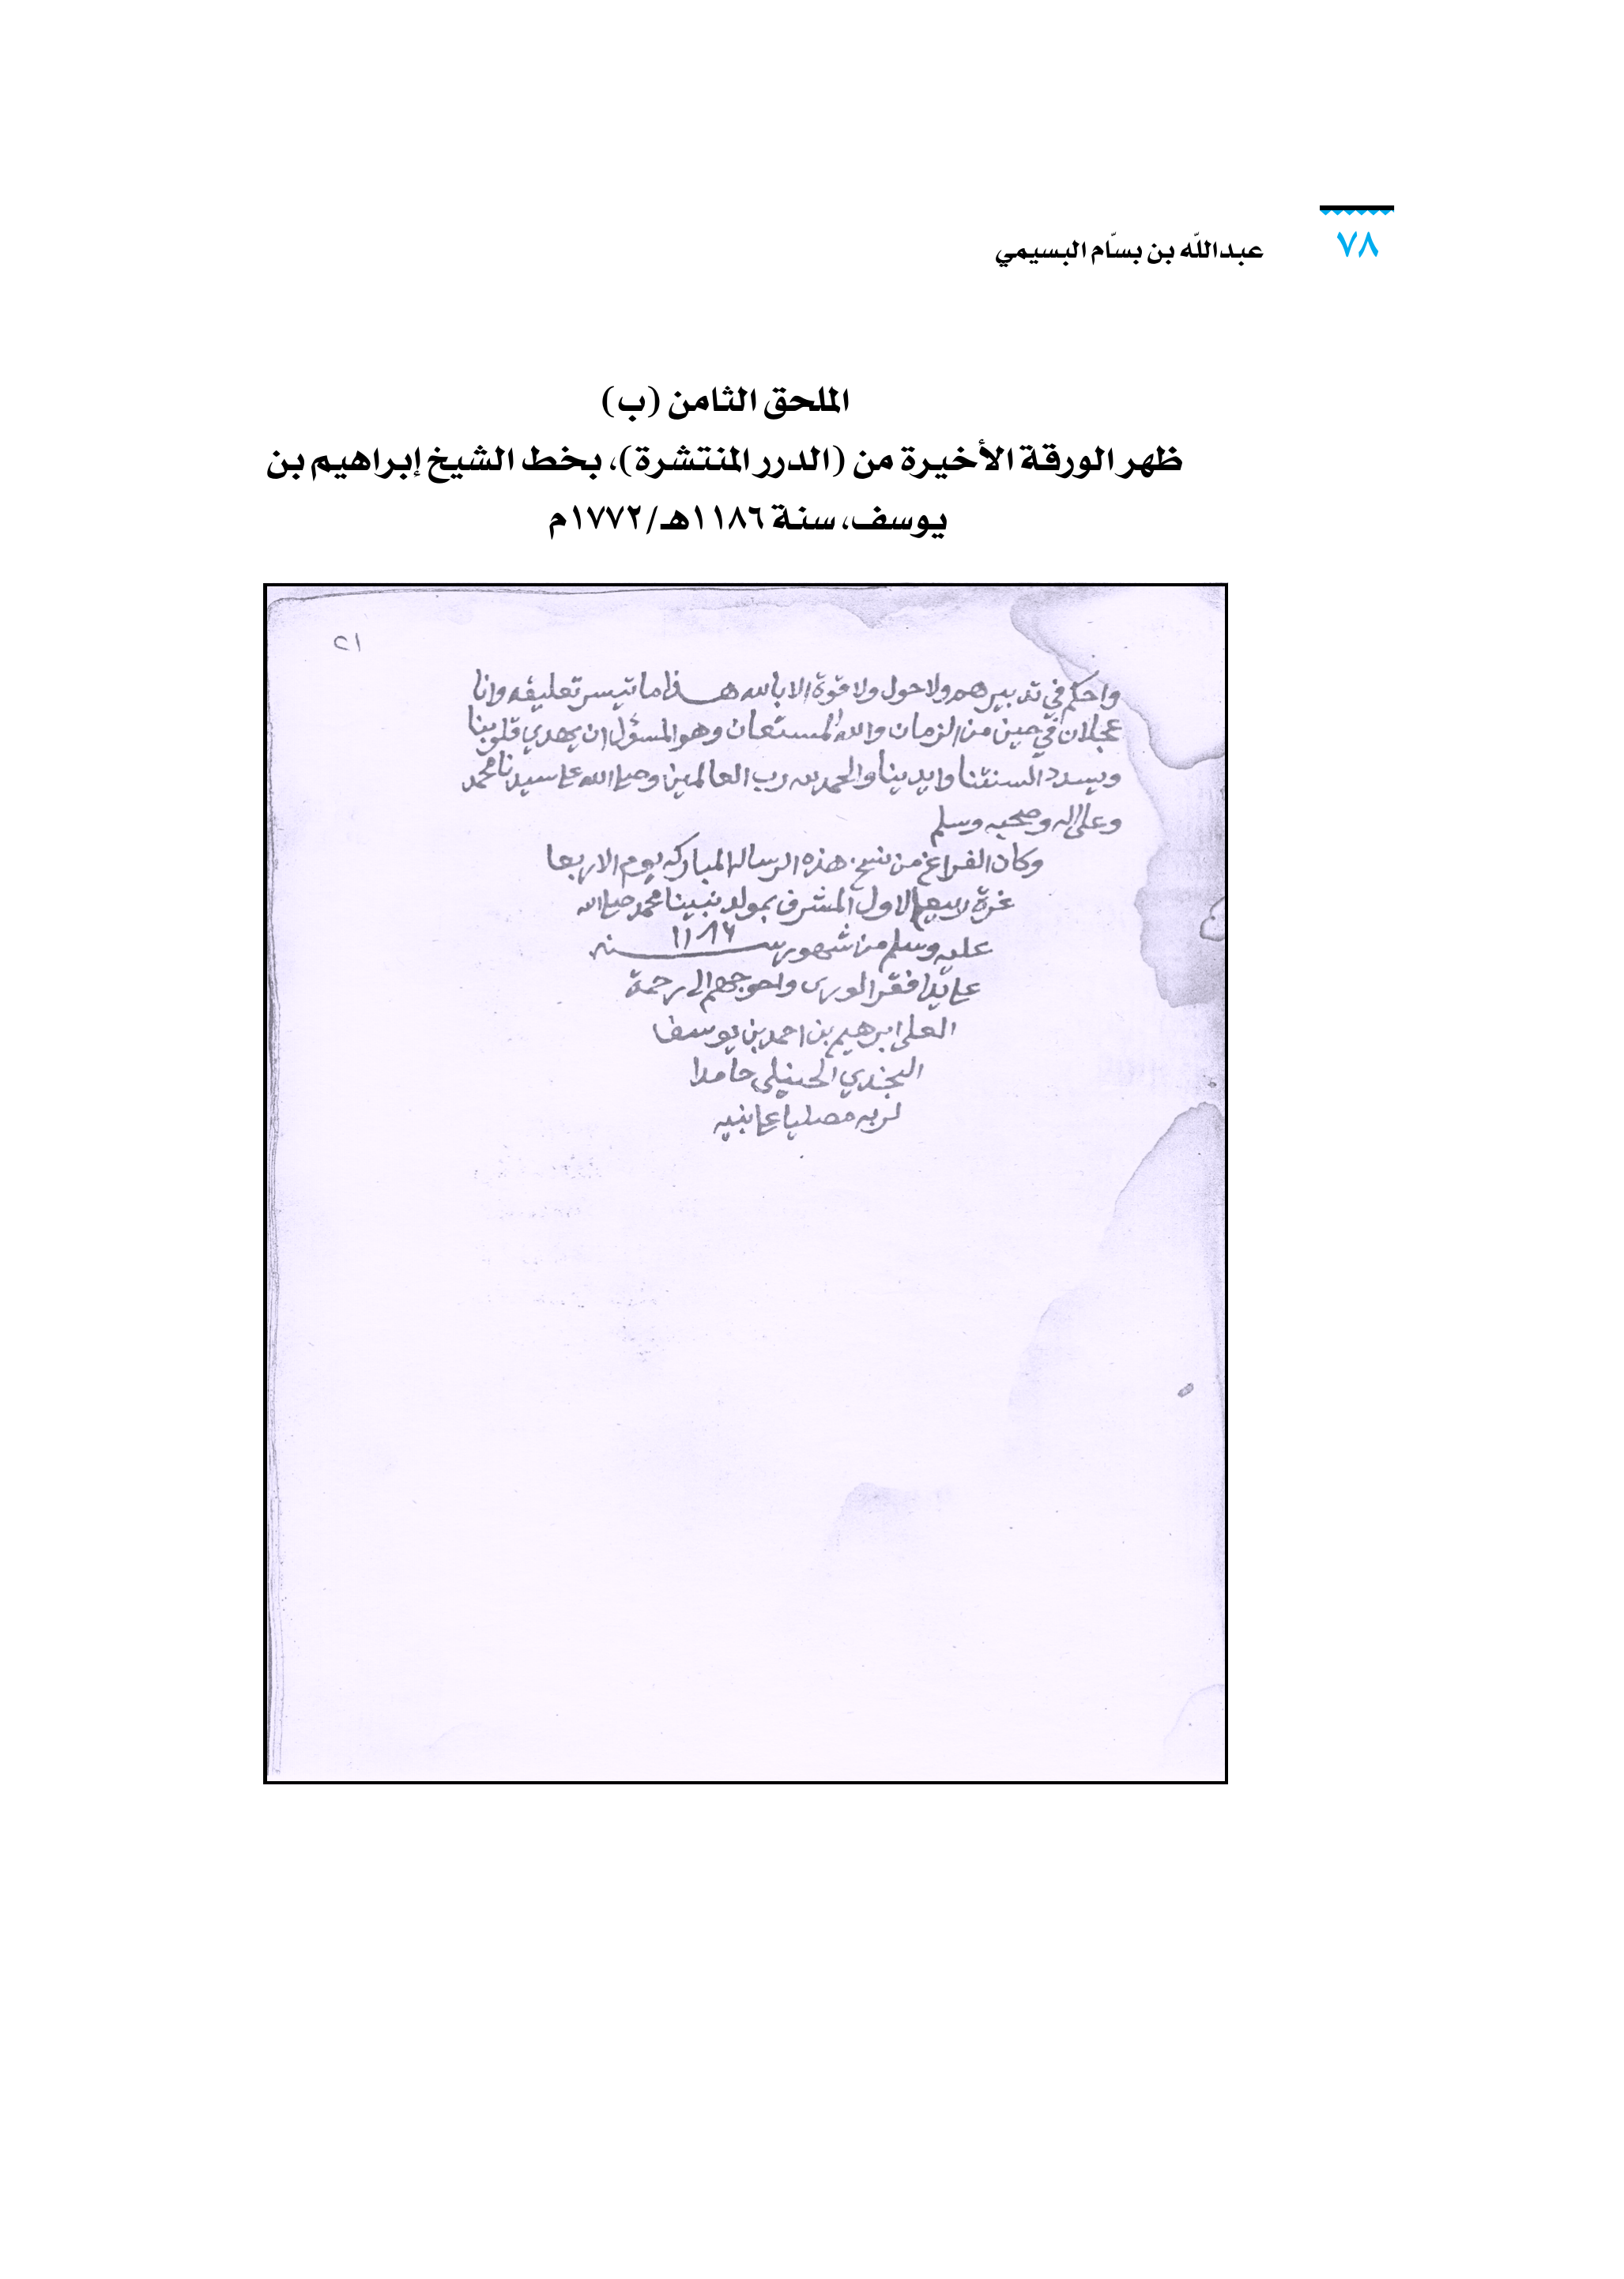 ٧٨
عبدالله بن بسّام البسيمي
الملحق الثامن (ب)
ظهر الورقة الأخيرة من (الدرر المنتشرة)، بخط الشيخ إبراهيم بن
يوسف، سنة ١١٨٦هـ/١٧٧٢م
٢١
واحكم في تدبيرهم ولا حول ولا قوة الا بالله هـذا ما تيسر تعليقه وانا
عجلان في حين من الزمان والله المستعان وهو المسؤل ان يهدي قلوبنا
ويسدد السنتنا وايدينا والحمد لله رب العالمين وصلى الله على سيدنا محمد
وعلى اله وصحبه وسلم
وكان الفراغ من نسخ هذه الرساله المباركه يوم الاربعا
غرة ربيع الاول المشرف بمولد نبينا محمد صلى الله
عليه وسلم من شهور سـنه ١١٨٦
على يد افقر الورى واحوجهم الى رحمة
العلي ابرهيم بن احمد بن يوسف
النجدي الحنبلي حامدا
لربه مصليا على نبيه